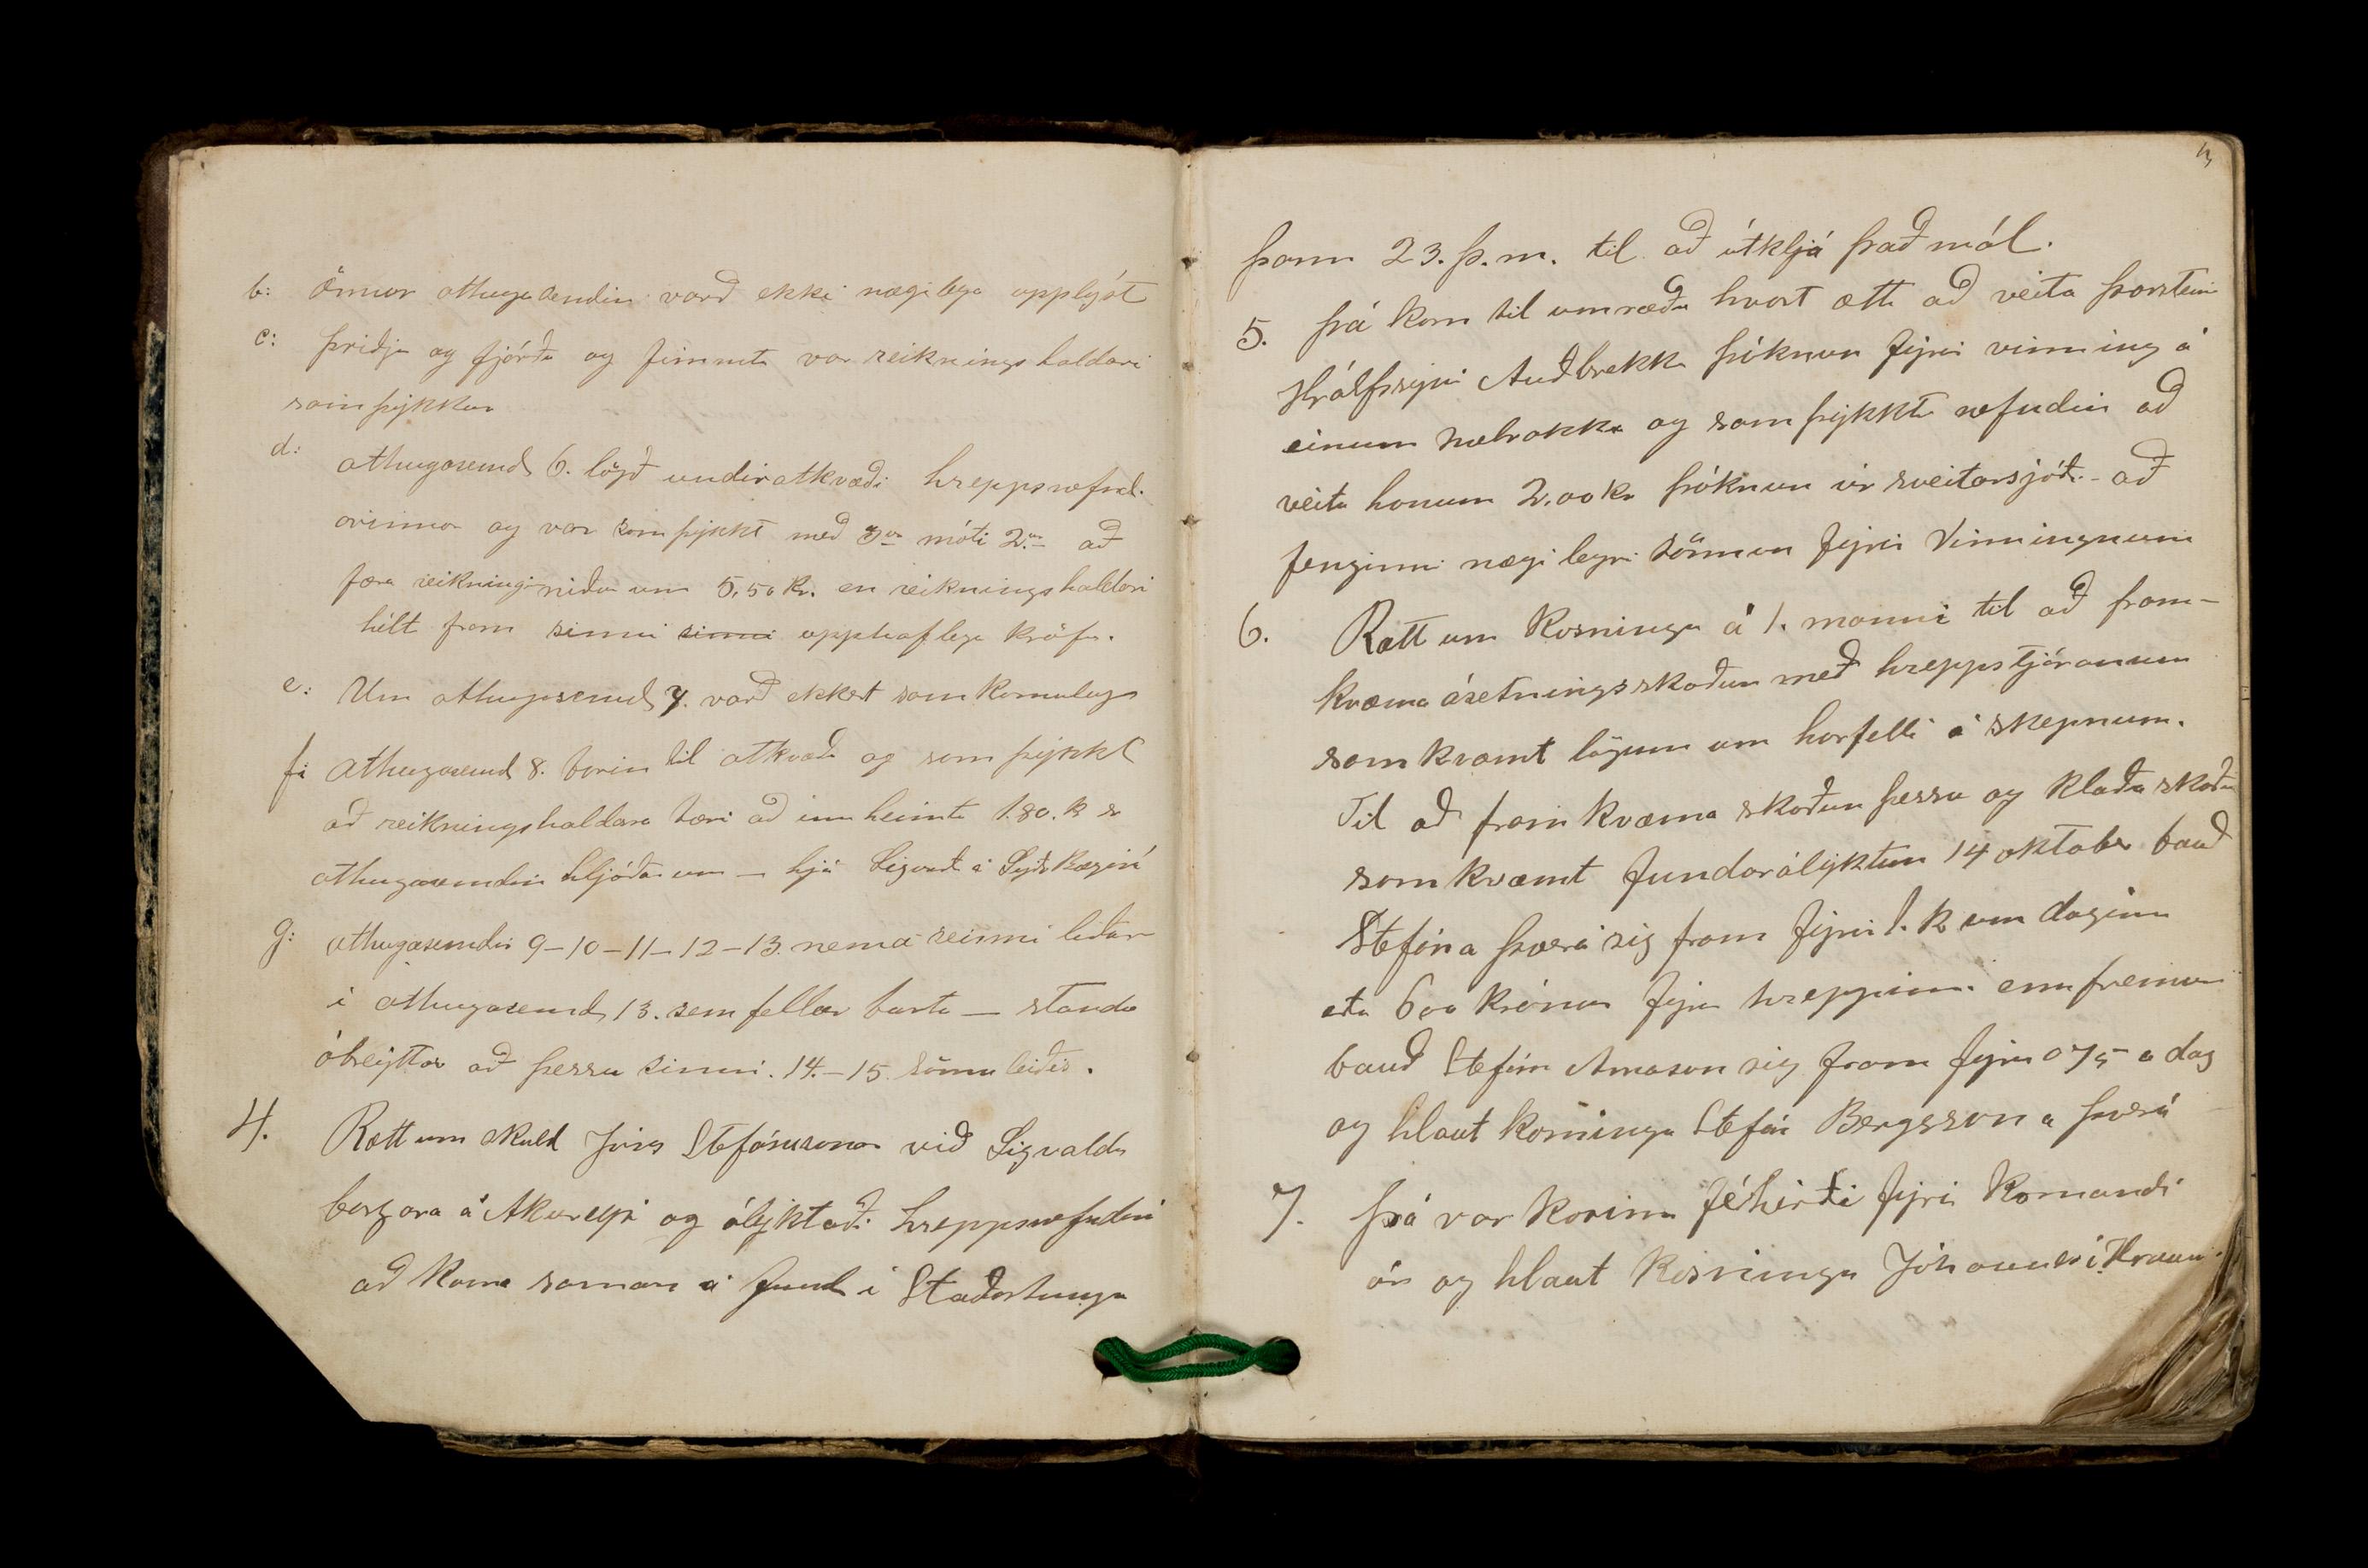 b: Önnur athugasendin varð ekki nægilega upplýst
c: þriðja og fjórða og fimmta var reiknings haldari
samþykkur
d: athugasemd 6. lögð undir atkvæði hreppsnefnd-
arinnar og var samþykkt með 3ur móti 2ur að
færa reikningi niður um 5,50 kr. en reikningshaldari
hélt fram sinni sinni upphaflega kröfu.
e: Um athugsemd 7. varð ekkert samkomulag
f: athugasemd 8. borin til atkvæða og samþykkt
að reikningshaldara bæri að innheimta 1.80. kr
athugasemdin hljóðar um — hjá Sigvalda á
g: athugasemdir 9-10-11-12-13. nema seinni liður
í athugasemd 13. sem fellur burtu — standa
óbreyttar að þessu sinni. 14.-15. sömuleiðis.
4. Rætt um skuld Jóns Stefánssonar við Sigvalda
borgara á Akureyri og ályktaði hreppsnefndin
að koma saman á fund í Staðartungu
þann 23. þ.m. til að útkljá það mál.
5. þá kom til umræðu hvort ætti að veita þorsteini
Auðbrekku þóknun fyrir vinning á
einum og samþykkti nefndin að
veita honum 2,00 kr þóknun úr sveitarsjóði - að
fenginni nægilegri sönnun fyrir vinningnum
6. Rætt um kosningu á 1. manni til að fram-
kvæma ásetningsskoðun með hreppstjóranum
samkvæmt lögum um horfelli á skepnum.
Til að framkvæma skoðun þessa og kláða skoðun
samkvæmt fundarályktun 14 oktober bauð
Stefán á þverá sig fram fyrir 1. kr um daginn
eða 600 krónur fyrir hreppinn ennfremur
bauð Stefán Arnason sig fram fyrir 075 a dag
og hlaut kosningu Stefán Bergsson a þverá
7. þá var kosinn féhirði fyrir komandi
ár og hlaut kosningu Jóhannes í Hraun